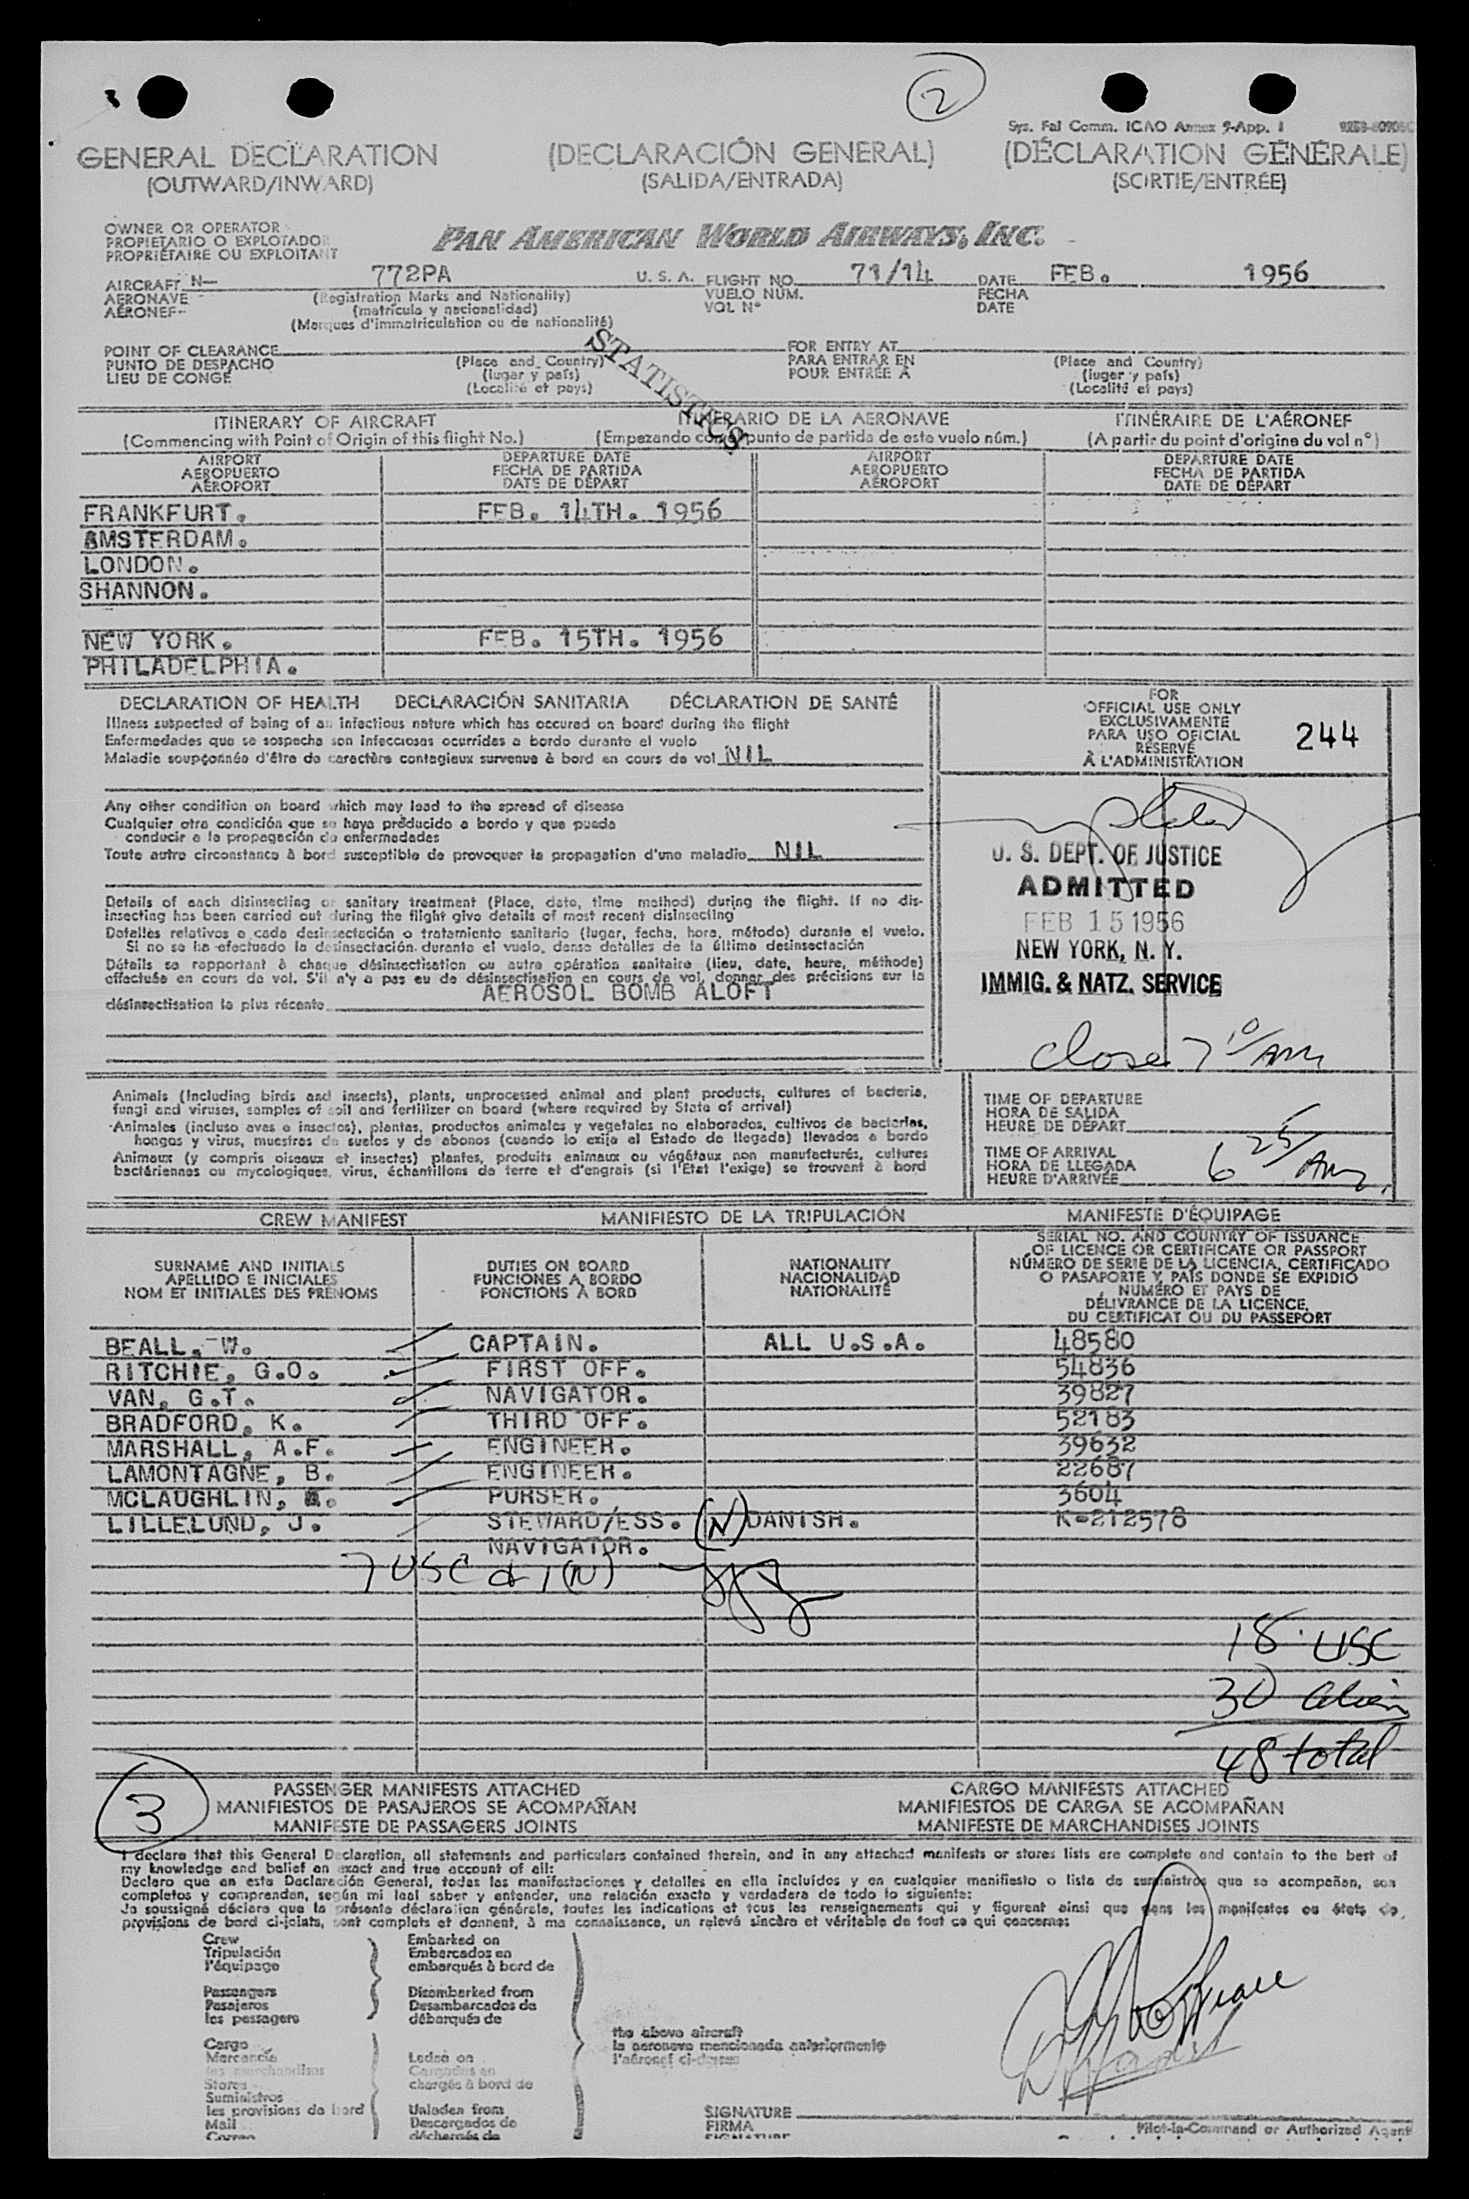 2
Sys. Fal Comm. ICAO Annex 9-App. 1
GENERAL DECLARATION (DECLARACIÓN GENERAL) (DÉCLARATION GÉNÉRALE)
(OUTWARD/INWARD) (SALIDA/ENTRADA) (SORTIE/ENTRÉE)
OWNER OR OPERATOR
PROPIETARIO O EXPLOTADOR
PROPRIÉTAIRE OU EXPLOITANT
PAN AMERICAN WORLD AIRWAYS, INC.
AIRCRAFT N— 772PA U. S. A. FLIGHT NO. 71/14 DATE FEB. 1956
AERONAVE (Registration Marks and Nationality) VUELO NÚM. FECHA
AÉRONEF (matrícula y nacionalidad) VOL Nº DATE
(Marques d'immatriculation ou de nationalité)
STATISTICS
POINT OF CLEARANCE FOR ENTRY AT
PUNTO DE DESPACHO (Place and Country) PARA ENTRAR EN (Place and Country)
LIEU DE CONGÉ (lugar y país) POUR ENTRÉE À (lugar y país)
(Localité et pays) (Localité et pays)
ITINERARY OF AIRCRAFT ITINERARIO DE LA AERONAVE ITINÉRAIRE DE L'AÉRONEF
(Commencing with Point of Origin of this flight No.) (Empezando con el punto de partida de este vuelo núm.) (A partir du point d'origine du vol nº)
AIRPORT DEPARTURE DATE AIRPORT DEPARTURE DATE
AEROPUERTO FECHA DE PARTIDA AEROPUERTO FECHA DE PARTIDA
AÉROPORT DATE DE DÉPART AÉROPORT DATE DE DÉPART
FRANKFURT. FEB. 14TH. 1956
AMSTERDAM.
LONDON.
SHANNON.
NEW YORK. FEB. 15TH. 1956
PHILADELPHIA.
DECLARATION OF HEALTH DECLARACIÓN SANITARIA DÉCLARATION DE SANTÉ
Illness suspected of being of an infectious nature which has occured on board during the flight
Enfermedades que se sospecha son infecciosas ocurridas a bordo durante el vuelo
Maladie soupçonnée d'être de caractère contagieux survenue à bord en cours de vol NIL
FOR
OFFICIAL USE ONLY
EXCLUSIVAMENTE
PARA USO OFICIAL
RÉSERVÉ
À L'ADMINISTRATION
244
Any other condition on board which may lead to the spread of disease
Cualquier otra condición que se haya producido a bordo y que pueda
conducir a la propagación de enfermedades
Toute autre circonstance à bord susceptible de provoquer la propagation d'une maladie NIL
Details of each disinsecting or sanitary treatment (Place, date, time method) during the flight. If no dis-
insecting has been carried out during the flight give details of most recent disinsecting
Detalles relativos a cada desinsectación o tratamiento sanitario (lugar, fecha, hora, método) durante el vuelo.
Si no se ha efectuado la desinsectación durante el vuelo, dense detalles de la última desinsectación
Détails se rapportant à chaque désinsectisation ou autre opération sanitaire (lieu, date, heure, méthode)
effectuée en cours de vol. S'il n'y a pas eu de désinsectisation en cours de vol, donner des précisions sur la
désinsectisation la plus récente AEROSOL BOMB ALOFT
U. S. DEPT. OF JUSTICE
ADMITTED
FEB 15 1956
NEW YORK, N. Y.
IMMIG. & NATZ. SERVICE
close 7 10/AM
Animals (Including birds and insects), plants, unprocessed animal and plant products, cultures of bacteria,
fungi and viruses, samples of soil and fertilizer on board (where required by State of arrival)
Animales (incluso aves e insectos), plantas, productos animales y vegetales no elaborados, cultivos de bacterias,
hongos y virus, muestras de suelos y de abonos (cuando lo exija el Estado de llegada) llevados a bordo
Animaux (y compris oiseaux et insectes) plantes, produits animaux ou végétaux non manufacturés, cultures
bactériennes ou mycologiques, virus, échantillons de terre et d'engrais (si l'État l'exige) se trouvant à bord
TIME OF DEPARTURE
HORA DE SALIDA
HEURE DE DÉPART
TIME OF ARRIVAL
HORA DE LLEGADA
HEURE D'ARRIVÉE 6 25/AM
CREW MANIFEST MANIFIESTO DE LA TRIPULACIÓN MANIFESTE D'ÉQUIPAGE
SURNAME AND INITIALS
APELLIDO E INICIALES
NOM ET INITIALES DES PRÉNOMS
DUTIES ON BOARD
FUNCIONES A BORDO
FONCTIONS À BORD
NATIONALITY
NACIONALIDAD
NATIONALITÉ
SERIAL NO. AND COUNTRY OF ISSUANCE
OF LICENCE OR CERTIFICATE OR PASSPORT
NÚMERO DE SERIE DE LA LICENCIA, CERTIFICADO
O PASAPORTE Y PAÍS DONDE SE EXPIDIÓ
NUMÉRO ET PAYS DE
DÉLIVRANCE DE LA LICENCE,
DU CERTIFICAT OU DU PASSEPORT
BEALL, W. CAPTAIN. ALL U.S.A. 48580
RITCHIE, G.O. FIRST OFF. 54836
VAN, G.T. NAVIGATOR. 39827
BRADFORD, K. THIRD OFF. 52183
MARSHALL, A.F. ENGINEER. 39632
LAMONTAGNE, B. ENGINEER. 22687
MCLAUGHLIN, PURSER. 3604
LILLELUND, J. STEWARD/ESS. (N) DANISH. K-212578
NAVIGATOR.
7 USC & 1 (N)
18 USC
30 alien
48 total
3
PASSENGER MANIFESTS ATTACHED CARGO MANIFESTS ATTACHED
MANIFIESTOS DE PASAJEROS SE ACOMPAÑAN MANIFIESTOS DE CARGA SE ACOMPAÑAN
MANIFESTE DE PASSAGERS JOINTS MANIFESTE DE MARCHANDISES JOINTS
I declare that this General Declaration, all statements and particulars contained therein, and in any attached manifests or stores lists are complete and contain to the best of
my knowledge and belief an exact and true account of all:
Declaro que en esta Declaración General, todas las manifestaciones y detalles en ella incluidos y en cualquier manifiesto o lista de suministros que se acompañen, son
completos y comprenden, según mi leal saber y entender, una relación exacta y verdadera de todo lo siguiente:
Je soussigné déclare que la présente déclaration générale, toutes les indications et tous les renseignements qui y figurent ainsi que dans les manifestes ou états de
provisions de bord ci-joints, sont complets et donnent, à ma connaissance, un relevé sincère et véritable de tout ce qui concerne:
Crew Embarked on
Tripulación Embarcados en
l'équipage embarqués à bord de
Passengers Disembarked from
Pasajeros Desembarcados de
les passagers débarqués de
the above aircraft
la aeronave mencionada anteriormente
l'aéronef ci-dessus
Cargo
Mercancía Laden on
les marchandises Cargados en
Stores chargés à bord de
Suministros
les provisions de bord Unladen from
Mail Descargados de
Correo déchargés de
SIGNATURE
FIRMA Pilot-in-Command or Authorized Agent
SIGNATURE